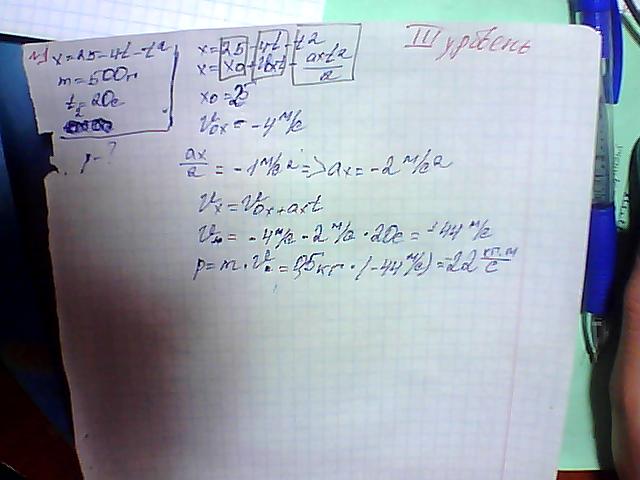 III уровень
№1 x=25-4t-t²
m=500г
t₂=20с
p-?
x=25-4t-t²
x=x₀+v₀ₓt+aₓt²/2
x₀=25
v₀ₓ=-4м/с
aₓ/2=-1м/с²=>aₓ=-2м/с²
vₓ=v₀ₓ+aₓt
vₓ=-4м/с-2м/с·20с=-44м/с
p=m·v=0,5кг·(-44м/с)=-22 кг·м/с